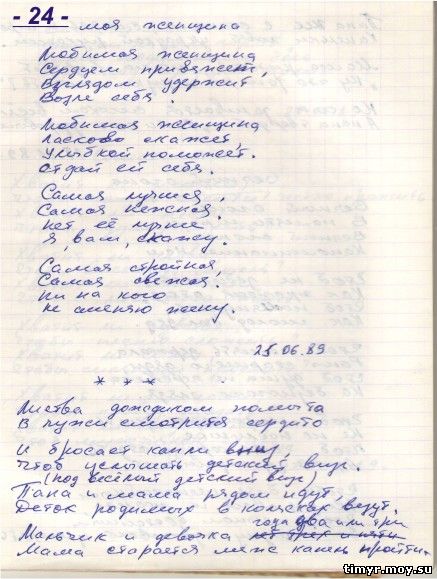 - 24 -
моя женщина
Любимая женщина
Сердцем привяжет,
Взглядом удержит
Возле себя.
Любимая женщина
Ласково скажет,
Улыбкой поможет,
Отдай ей себя.
Самая лучшая,
Самая нежная,
Нет её лучше
Я, вам, скажу.
Самая стройная,
Самая свежая.
Ни на кого
не сменяю жену.
25.06.89
* * *
Листва дождиком помыта
В лужи смотрится сердито
И бросает капли вниз,
Чтоб услышать детский визг.
(под весёлый детский визг)
Папа и мама рядом идут,
Деток родимых в колясках везут.
года два или три
Мальчик и девочка лет трех и пяти
Мама старается меж капель пройти.
timyr.moy.su